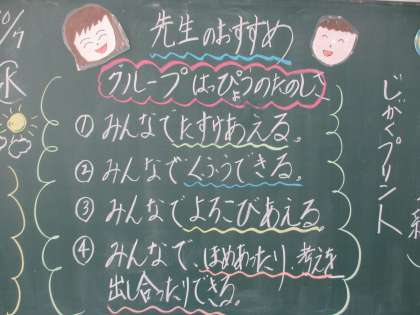 先生のおすすめ
グループはっぴょうのたのしさ
①みんなでたすけあえる。
②みんなでくふうできる。
③みんなでよろこびあえる。
④みんなで、ほめあったり、考えを
出し合ったりできる。
じがくプリント
水